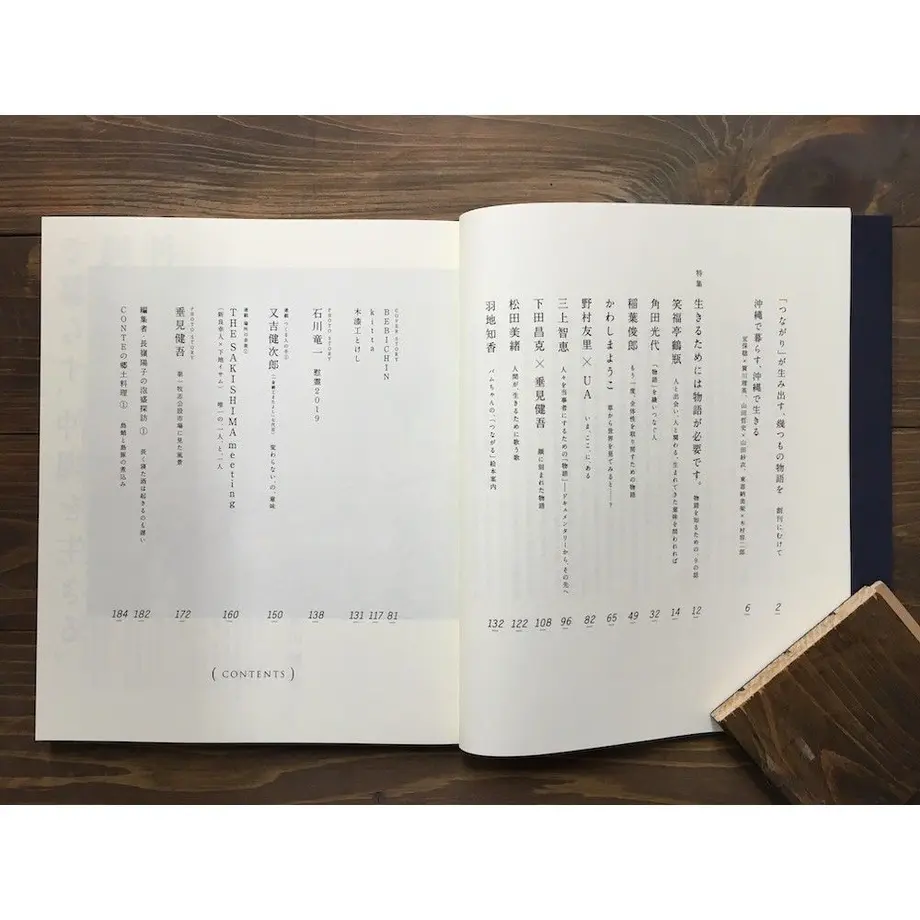 「つながり」が生み出す、幾つもの物語を 創刊にむけて
2
沖縄で暮らす、沖縄で生きる
6
特集 生きるためには物語が必要です。
12
笑福亭鶴瓶 人と出会い、人と関わる。生まれてきた意味を問われれば
14
角田光代 「物語」を縫いつなぐ人
32
稲葉俊郎 もう一度、全体性を取り戻すための物語
49
かわしまようこ 草から世界を見てみると――?
65
野村友里×UA いま、ここに、ある
82
三上智恵 人々を当事者にするための「物語」――ドキュメンタリーから、その先へ
96
下田昌克×垂見健吾 顔に刻まれた物語
108
松田美緒 人間が、生きるために歌う歌
122
羽地知香 パムちゃんの、「つながる」絵本案内
132
COVER STORY
BEBICHIN
81
kitta
117
木漆工とけし
131
PHOTO STORY
石川竜一 慰霊2019
138
又吉健次郎 変わらない、の、意味
150
THE SAKISHIMA meeting
(新良幸人×下地イサム) 唯一の一人、と、一人
160
PHOTO STORY
垂見健吾 第一牧志公設市場に見た風景
172
編集者・長嶺陽子の泡盛探訪① 長く寝た酒は起きるのも遅い
182
CONTEの郷土料理① 島蛸と島豚の煮込み
184
(CONTENTS)